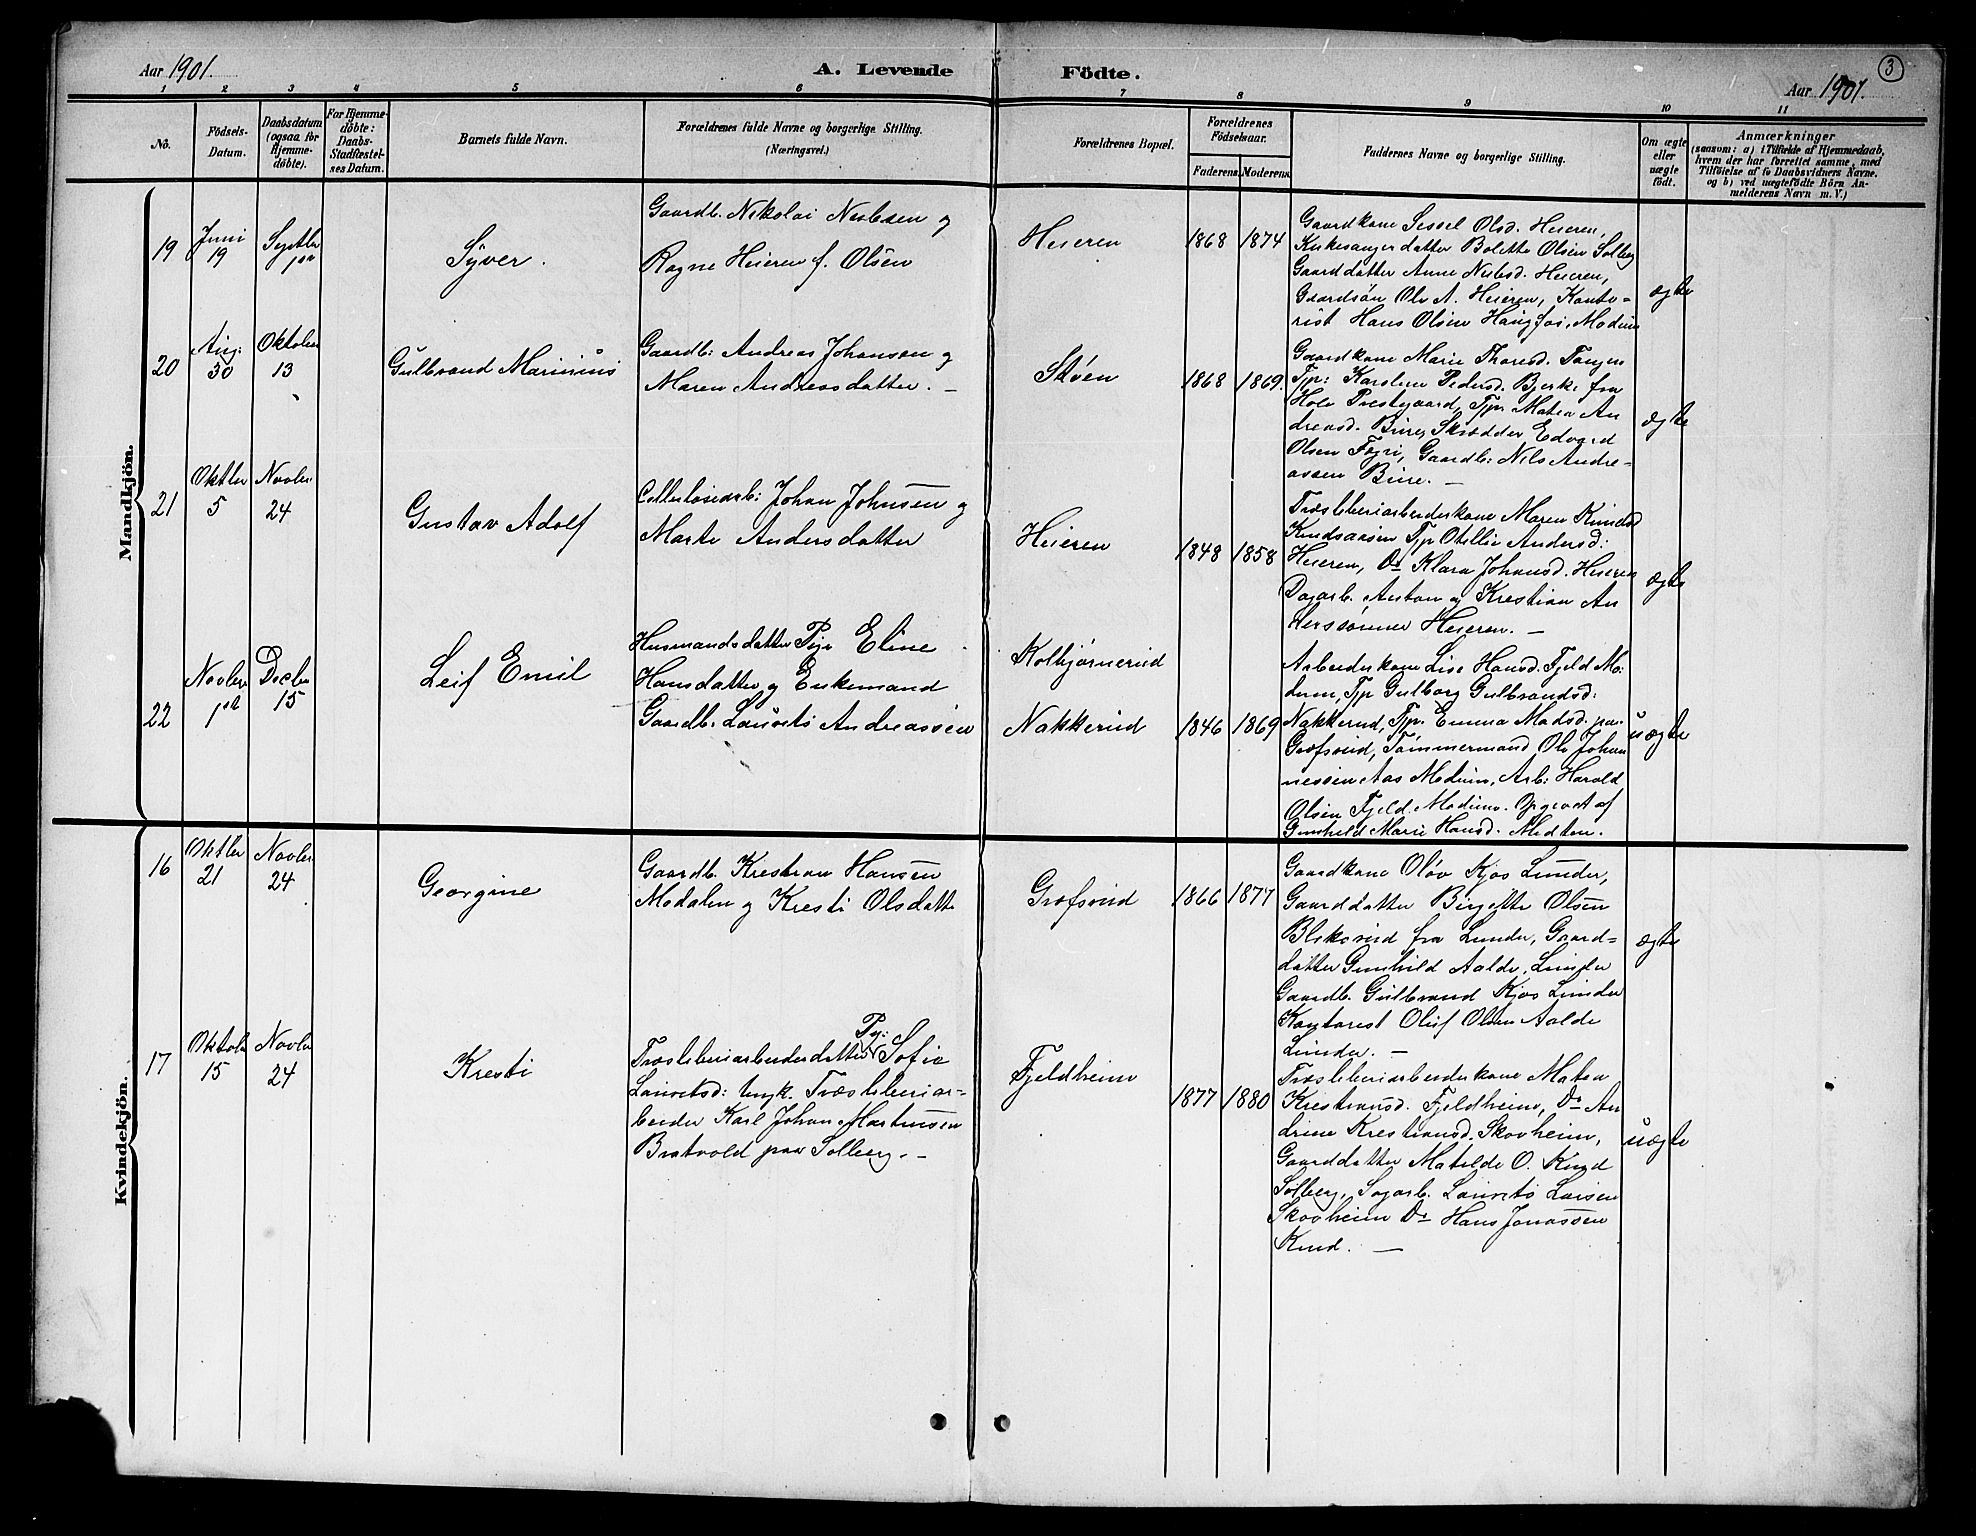 Aar 1901.
A. Levende Födte.
Aar 1901.
3
1 2 3 4 5 6 7 8 9 10 11
No.
Födsels-
Datum.
Daabsdatum
(ogsaa for
Hjemme-
döbte).
For Hjemme-
döbte:
Daabs-
Stadfæstel-
ses Datum.
Barnets fulde Navn.
Forældrenes fulde Navne og borgerlige Stilling.
(Næringsvei.)
Forældrenes Bopæl.
Forældrenes
Födselsaar.
Faderens. Moderens.
Faddernes Navne og borgerlige Stilling.
Om ægte
eller
uægte
födt.
Anmærkninger
(saasom: a) i Tilfælde af Hjemmedaab,
hvem der har forrettet samme, med
Tilföielse af to Daabsvidners Navne.
og b) ved uægtefödte Börn An-
melderens Navn m. V.)
Mandkjön.
19
Juni
19
Septbr
1ste
Syver.
Gaardb. Nikolai Nielsen og
Ragne Heieren f. Olsen
Heieren
1868 1874
Gaardkone Sessel Olsd. Heieren,
Kirkesangerdatter Bolette Olsen Solberg
Gaarddatter Anne Nielsd. Heieren,
Gaardsön Ole A. Heieren, Konto-
rist Hans Olsen Haugfos, Modum
ægte
20
Aug:
30
Oktober
13
Gulbrand Marinius
Gaardb: Andreas Johansen og
Maren Andreasdatter. —
Stöen
1868 1869.
Gaardkone Marie Thoresd. Tangen
Tjp: Karoline Pedersd. Bjerke fra
Hole Prestegaard, Tjp. Matea An
dreasd. Bure, Skrædder Edvard
Olsen Fagri, Gaardb: Nils Andre-
assen Bure. —
ægte
21
Oktbr
5
Novbr
24
Gustav Adolf
Cellulosearb: Johan Johnsen og
Marte Andersdatter
Heieren
1848 1858
Træsliberiarbeiderkone Maren Knudsd
Tjp Otellie Andersd:
Heieren, Do Klara Johansd. Heieren
Dagarb. Anton og Krestian An
derssönner Heieren. —
ægte
22
Novbr
1ste
Decbr
15
Leif Emil
Husmandsdatter Pige Eline
Hansdatter og Enkemand
Gaardb. Laurets Andreassen
Kolbjørnerud
Nakkerud
1846 1869
Arbeiderkone Lise Hansd. Fjeld Mo-
dum, Tjp Gulborg Gulbrandsd:
Nakkerud, Tjp. Emma Madsd. paa
Grofsrud, Tömmermand Ole Johan
nessen Aas Modum, Arb: Harald
Olsen Fjeld. Modum. Opgivet af
Gunhild Marie Hansd. Medten.
uægte
Kvindekjön.
16
Oktbr
21
Novbr
24
Georgine
Gaardb. Krestian Hansen
Modalen og Kresti Olsdatter
Grofsrud
1866 1877
Gaardkone Olöv Kjos Lunder,
Gaarddatter Birgitte Olsen
Bleksrud fra Lunder, Gaard-
datter Gunhild Aalde, Lunder
Gaardb. Gulbrand Kjos Lunder
Kontorist Oluf Olsen Aalde
Lunder. —
ægte
17
Oktober
15
Novbr
24
Kresti
Træsliberiarbeiderdatter Pg: Sofie
Lauretsd: Ungk. Træsliberiar-
beider Karl Johan Martinssen
Bratvold paa Solberg. —
Fjeldheim
1877 1880
Træsliberiarbeiderkone Matea
Krestiansd. Fjeldheim, Do An
drine Krestiansd. Skovheim,
Gaarddatter Matilde O. Knud
Solberg, Sagarb. Laurets Larsen
Skovheim Do Hans Jonassen
Knud. —
uægte